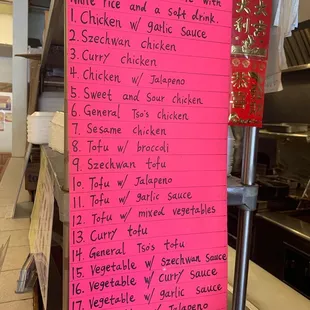 white rice and a soft drink.
1. Chicken w/ garlic Sauce
2. Szechwan chicken
3. Curry chicken
4. Chicken w/ Jalapeno
5. Sweet and Sour chicken
6. General Tso's chicken
7. Sesame chicken
8. Tofu w/ broccoli
9. Szechwan tofu
10 Tofu w/ Jalapeno
11. Tofu w/ garlic Sauce
12. Tofu w/ mixed vegetables
13. Curry tofu
14 General Tso's tofu
15. Vegetable w/ Szechwan Sauce
16. Vegetable w/ curry Sauce
17. Vegetable w/ garlic sauce
w/ Jalapeno
大吉
大利
恭喜